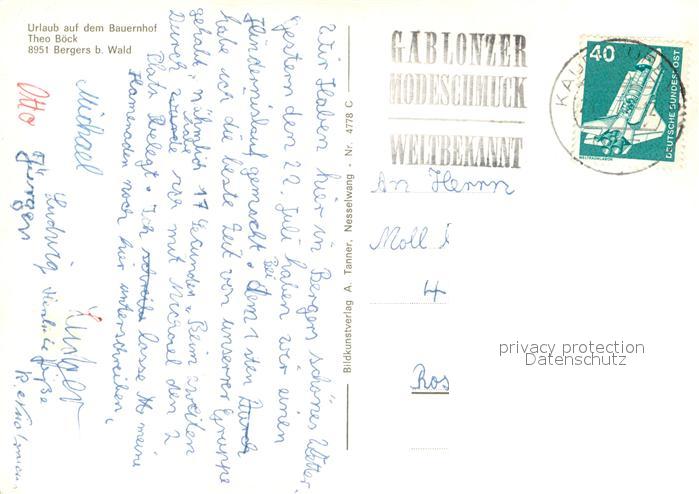 Urlaub auf dem Bauernhof
Theo Böck
8951 Bergers b. Wald
Wir haben hier in Bergers schönes Wetter.
Gestern den 22. Juli haben wir einen
Hindernislauf gemacht. Bei dem 1sten Durch
habe ich die beste Zeit von unserer Gruppe
gehabt, nähmlich 17 Secunden. Beim zweiten
Durch wurde ich mit Michael den 2
Platz Belegt. Ich schreibe lasse M meine
Kameraden noch hier unterschreiben.
Michael
Otto
Ludwig
Jürgen
Bildkunstverlag A. Tanner, Nesselwang - Nr. 4778 C
GABLONZER
MODESCHMUCK
WELTBEKANNT
KAUF
40
DEUTSCHE BUNDESPOST
WELTRAUMLABOR
An Herrn
Moll
4
Ros
privacy protection
Datenschutz